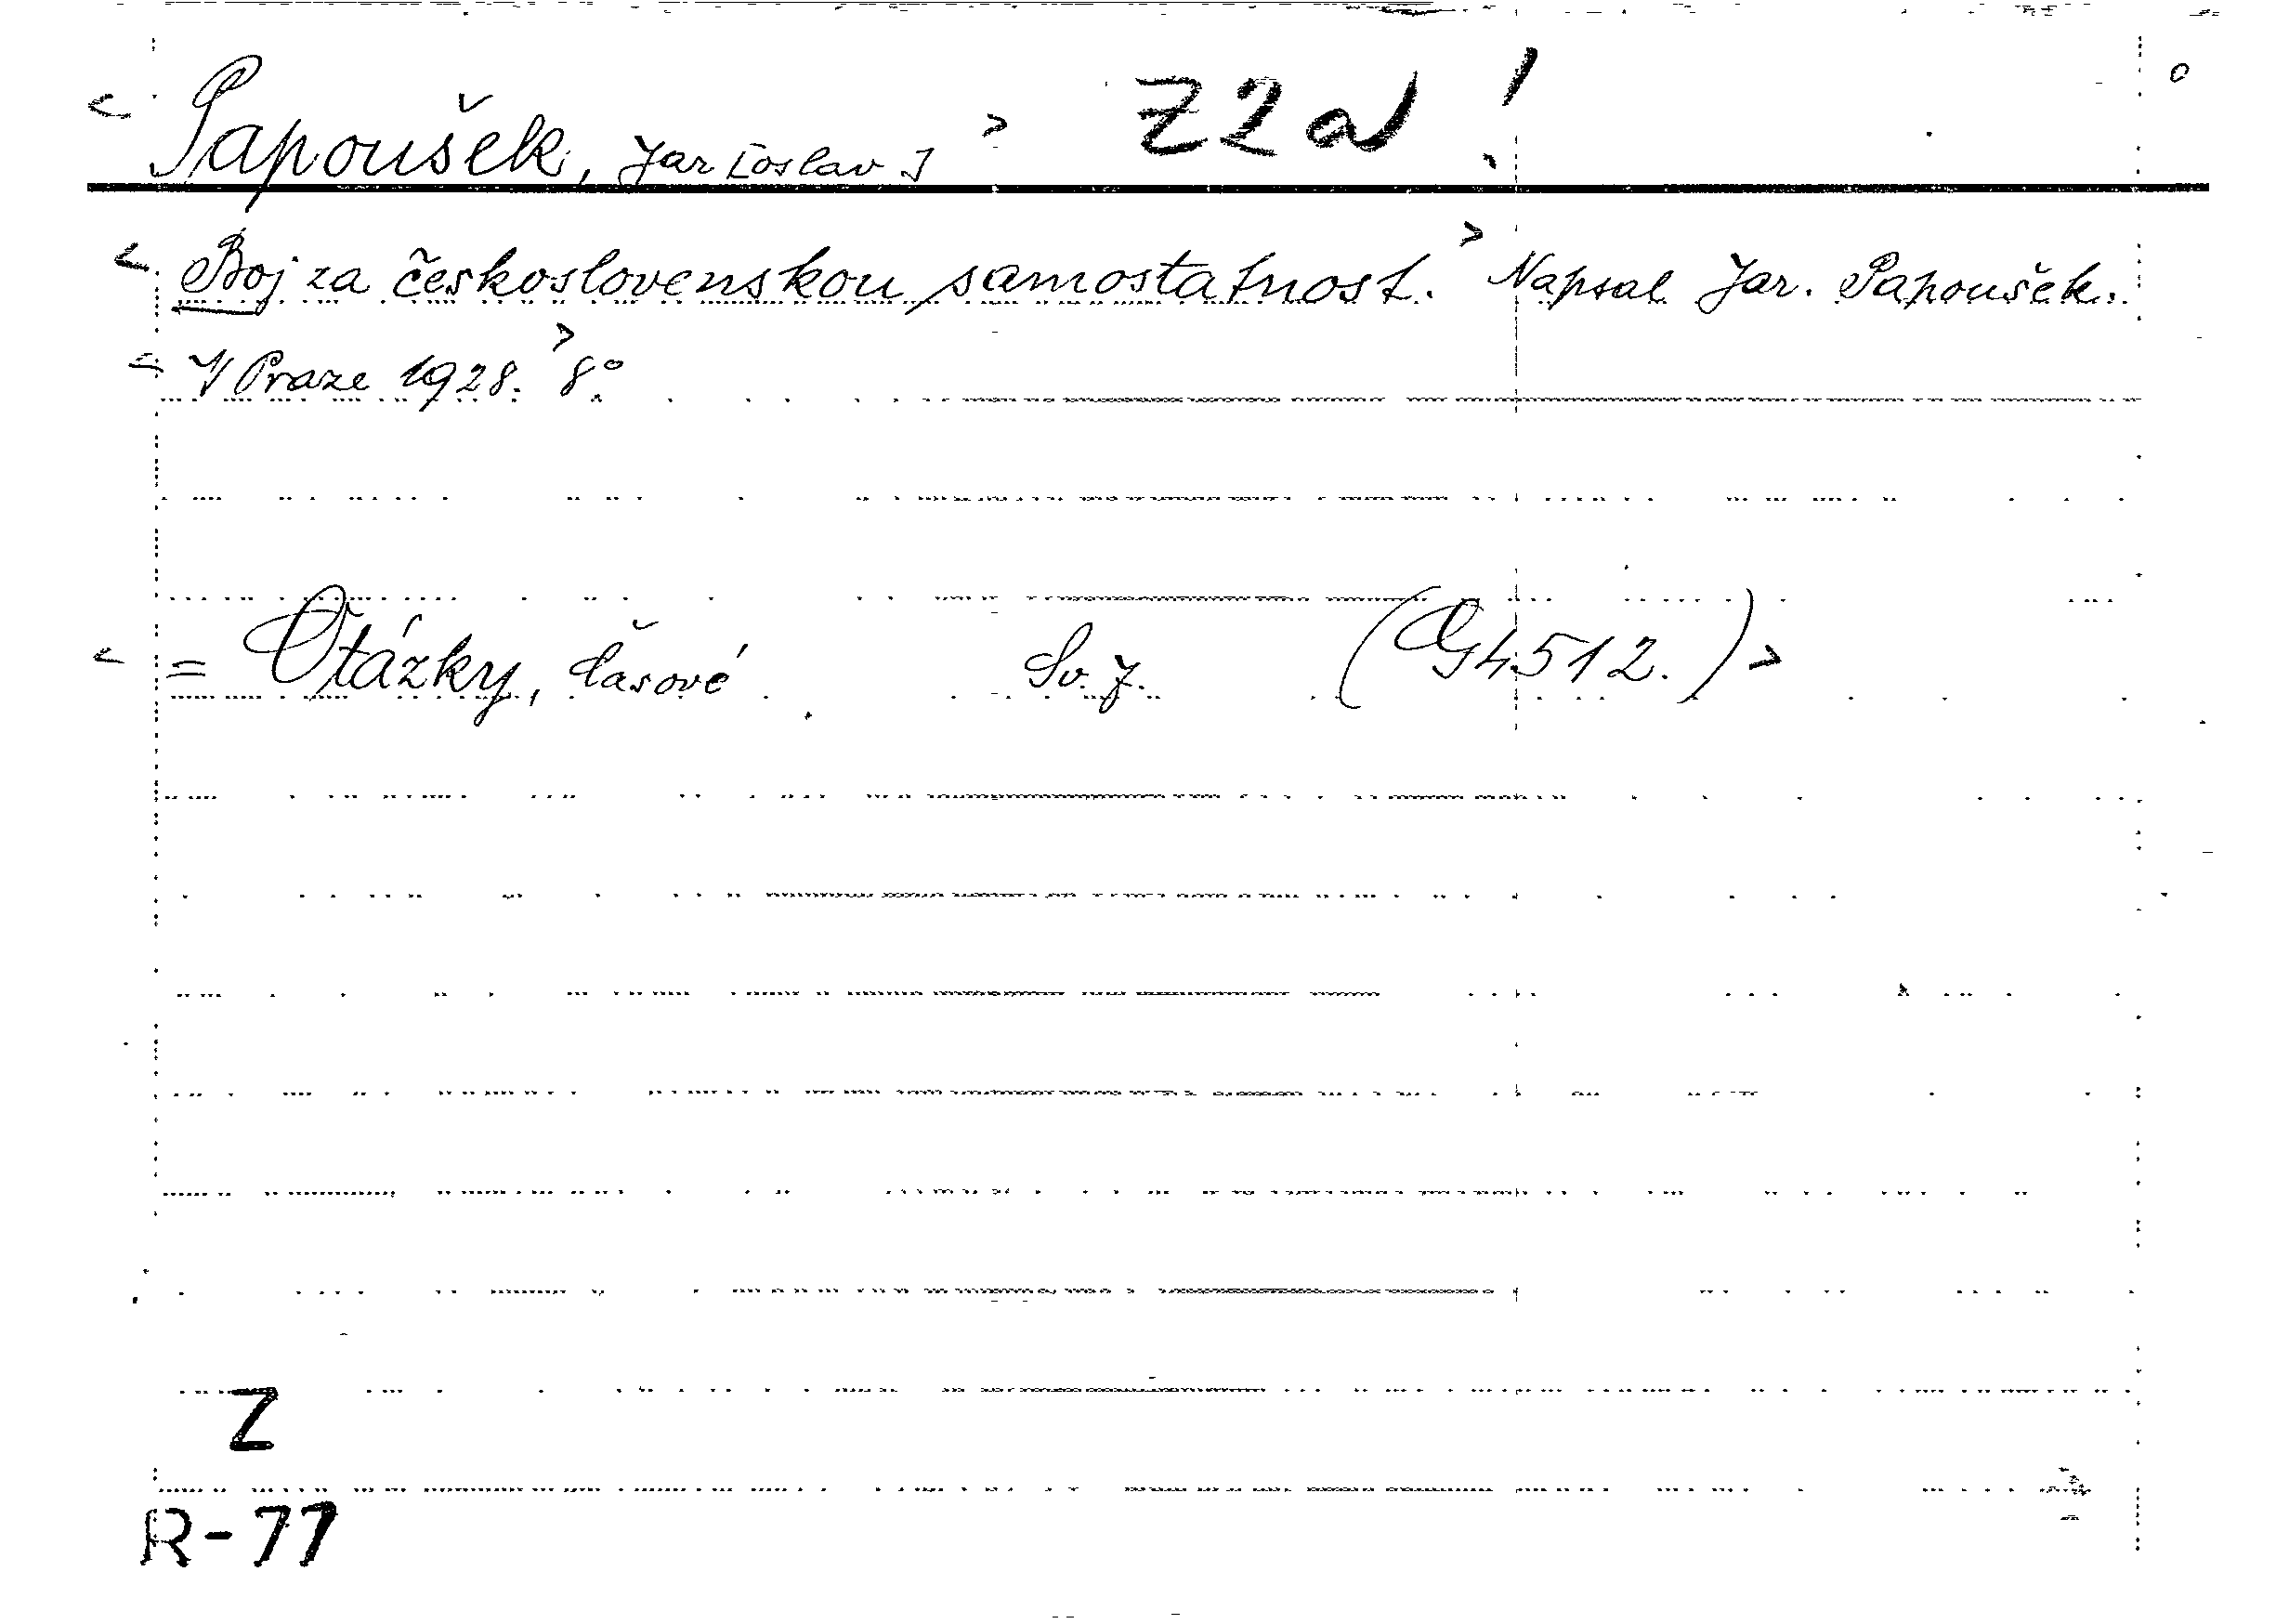 < Papoušek, Jar[oslav] > Z2a!
< Boj za československou samostatnost. > Napsal Jar. Papoušek.
< V Praze 1928. > 8°.
< = Otázky, časové Sv. 7. (G 4512.) >
Z
R-77